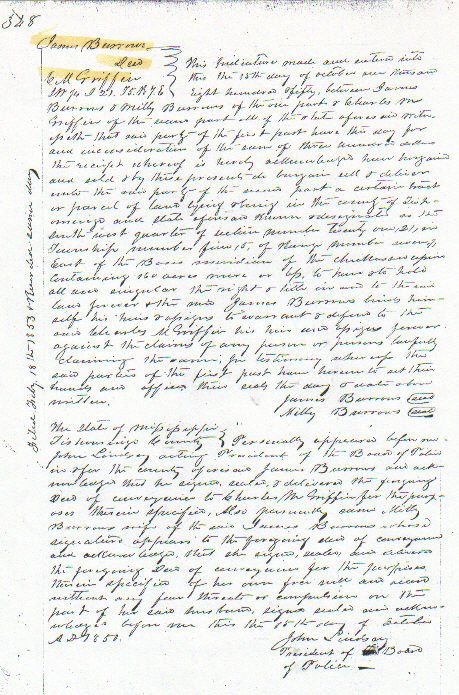 548
James Burrows
Deed
C M Griffin
SW ¼ S 21. T5. R7E
This Indenture made and entered into
this the 15th day of October one thousand
Eight hundred & fifty, between James
Burrows & Milly Burrows of the one part & Charles M
Griffin of the second part all of the state aforesaid witnes
seth that said party of the first part have this day for
and in consideration of the sum of three hundred dollars
the receipt whereof is hereby acknowledged have bargained
and sold & by these presents do bargain sell & deliver
unto the said party of the second part a certain tract
or parcel of land lying & being in the county of Tish-
omingo and state aforesaid known & designated as the
south west quarter of section number twenty one, 21, in
Township number five, 5, of Range number seven,
East of the Basis meridian of the Chickasaw cession
containing 160 acres more or less, to have & to hold
all and singular the right & title in and to the said
land forever & the said James Burrows binds him-
self his heirs & assigns to warrant & defend to the
said Charles M Griffin his heirs and assigns forever
against the claims of any person or persons lawfully
claiming the same; In testimony whereof the
said parties of the first part have hereunto set their
hands and affixed their seals the day & date above
written.
James Burrows (seal)
Milly Burrows (seal)
The State of Mississippi
Tishomingo County } Personally appeared before me
John Lindsay acting President of the Board of Police
in & for the county aforesaid James Burrows and ack
nowledged that he signed, sealed, & delivered the foregoing
Deed of conveyance to Charles M Griffin for the purp-
oses therein specified, Also personally came Milly
Burrows wife of the said James Burrows whose
signature appears to the foregoing deed of conveyance
and acknowledged, that she signed, sealed, and delivered
the foregoing Deed of conveyance for the purposes
therein specified of her own free will and accord
without any fear threats or compulsion on the
part of her said husband, signed sealed and ackno-
wledged before me this the 15th day of October
A.D. 1850.
John Lindsay
President of the Board
of Police
Filed Feby. 18th 1853 & Recorded same day